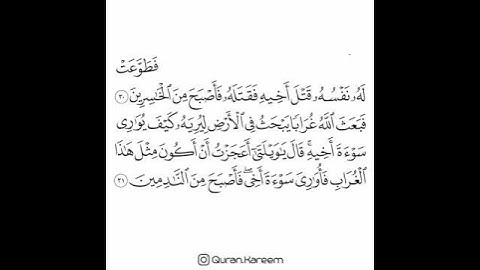 فَطَوَّعَتْ
لَهُۥ نَفْسُهُۥ قَتْلَ أَخِيهِ فَقَتَلَهُۥ فَأَصْبَحَ مِنَ ٱلْخَٰسِرِينَ ٣٠
فَبَعَثَ ٱللَّهُ غُرَابًا يَبْحَثُ فِى ٱلْأَرْضِ لِيُرِيَهُۥ كَيْفَ يُوَٰرِى
سَوْءَةَ أَخِيهِ ۚ قَالَ يَٰوَيْلَتَىٰٓ أَعَجَزْتُ أَنْ أَكُونَ مِثْلَ هَٰذَا
ٱلْغُرَابِ فَأُوَٰرِىَ سَوْءَةَ أَخِى ۖ فَأَصْبَحَ مِنَ ٱلنَّٰدِمِينَ ٣١
Quran.Kareem